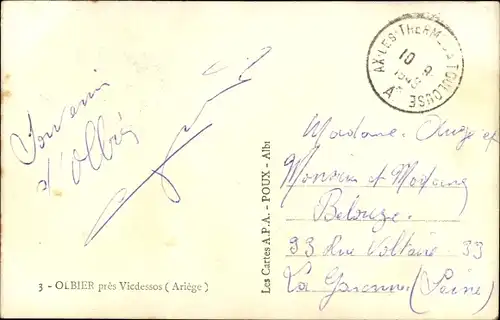 Souvenir
d'Olbier
3 - OLBIER près Vicdessos (Ariège)
Les Cartes A.P.A. - POUX - Albi
AX-LES-THERMES A TOULOUSE
10 - 8
A
Madame Auge et
Monsieur et Madame
Belouze
93 Rue Voltaire 93
La Garenne (Seine)